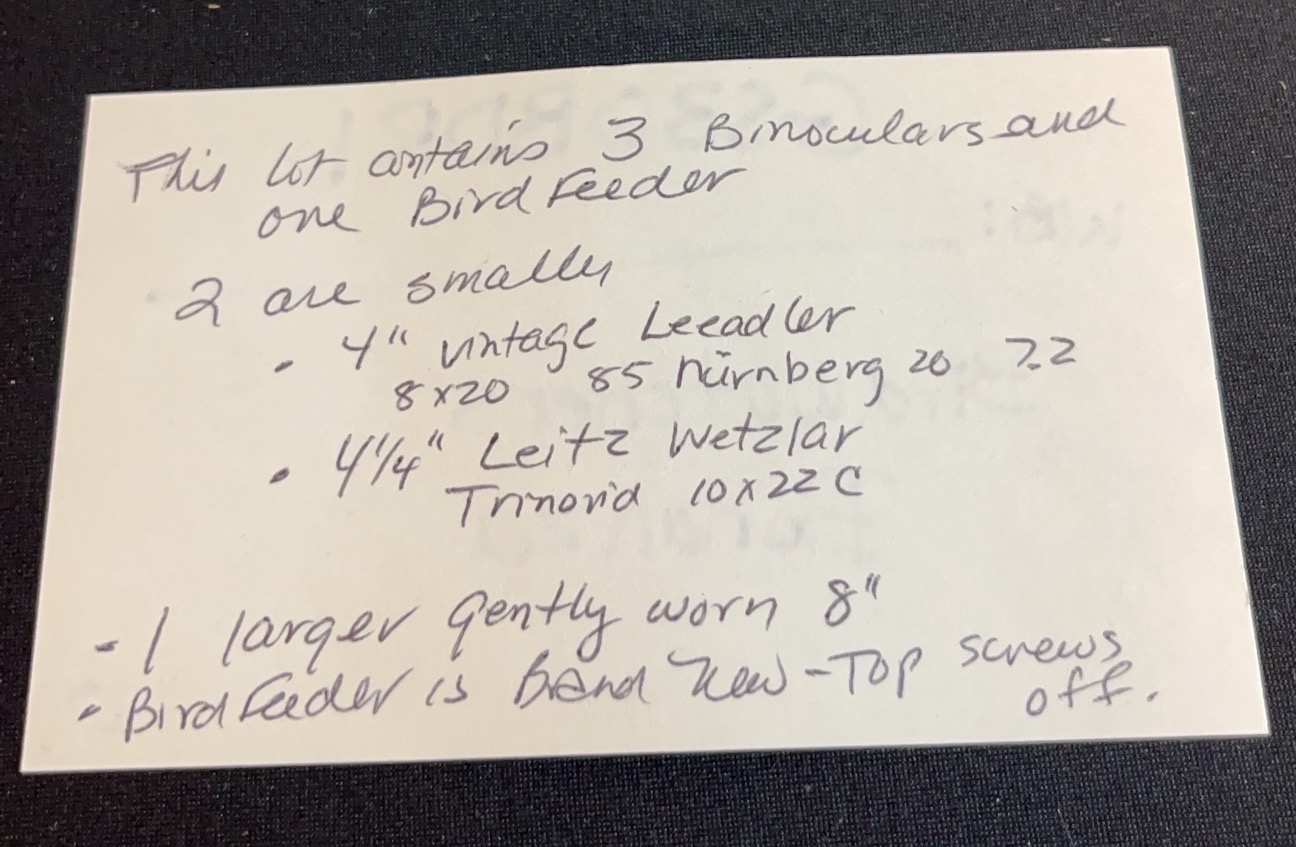 This lot contains 3 Binoculars and
one Bird Feeder
2 are smaller
• 4" vintage Leeadler
8x20 85 Nürnberg 20 7.2
• 4 1/4" Leitz Wetzlar
Trinovid 10x22 C
- 1 larger gently worn 8"
- Bird Feeder is Brand New - Top screws
off.